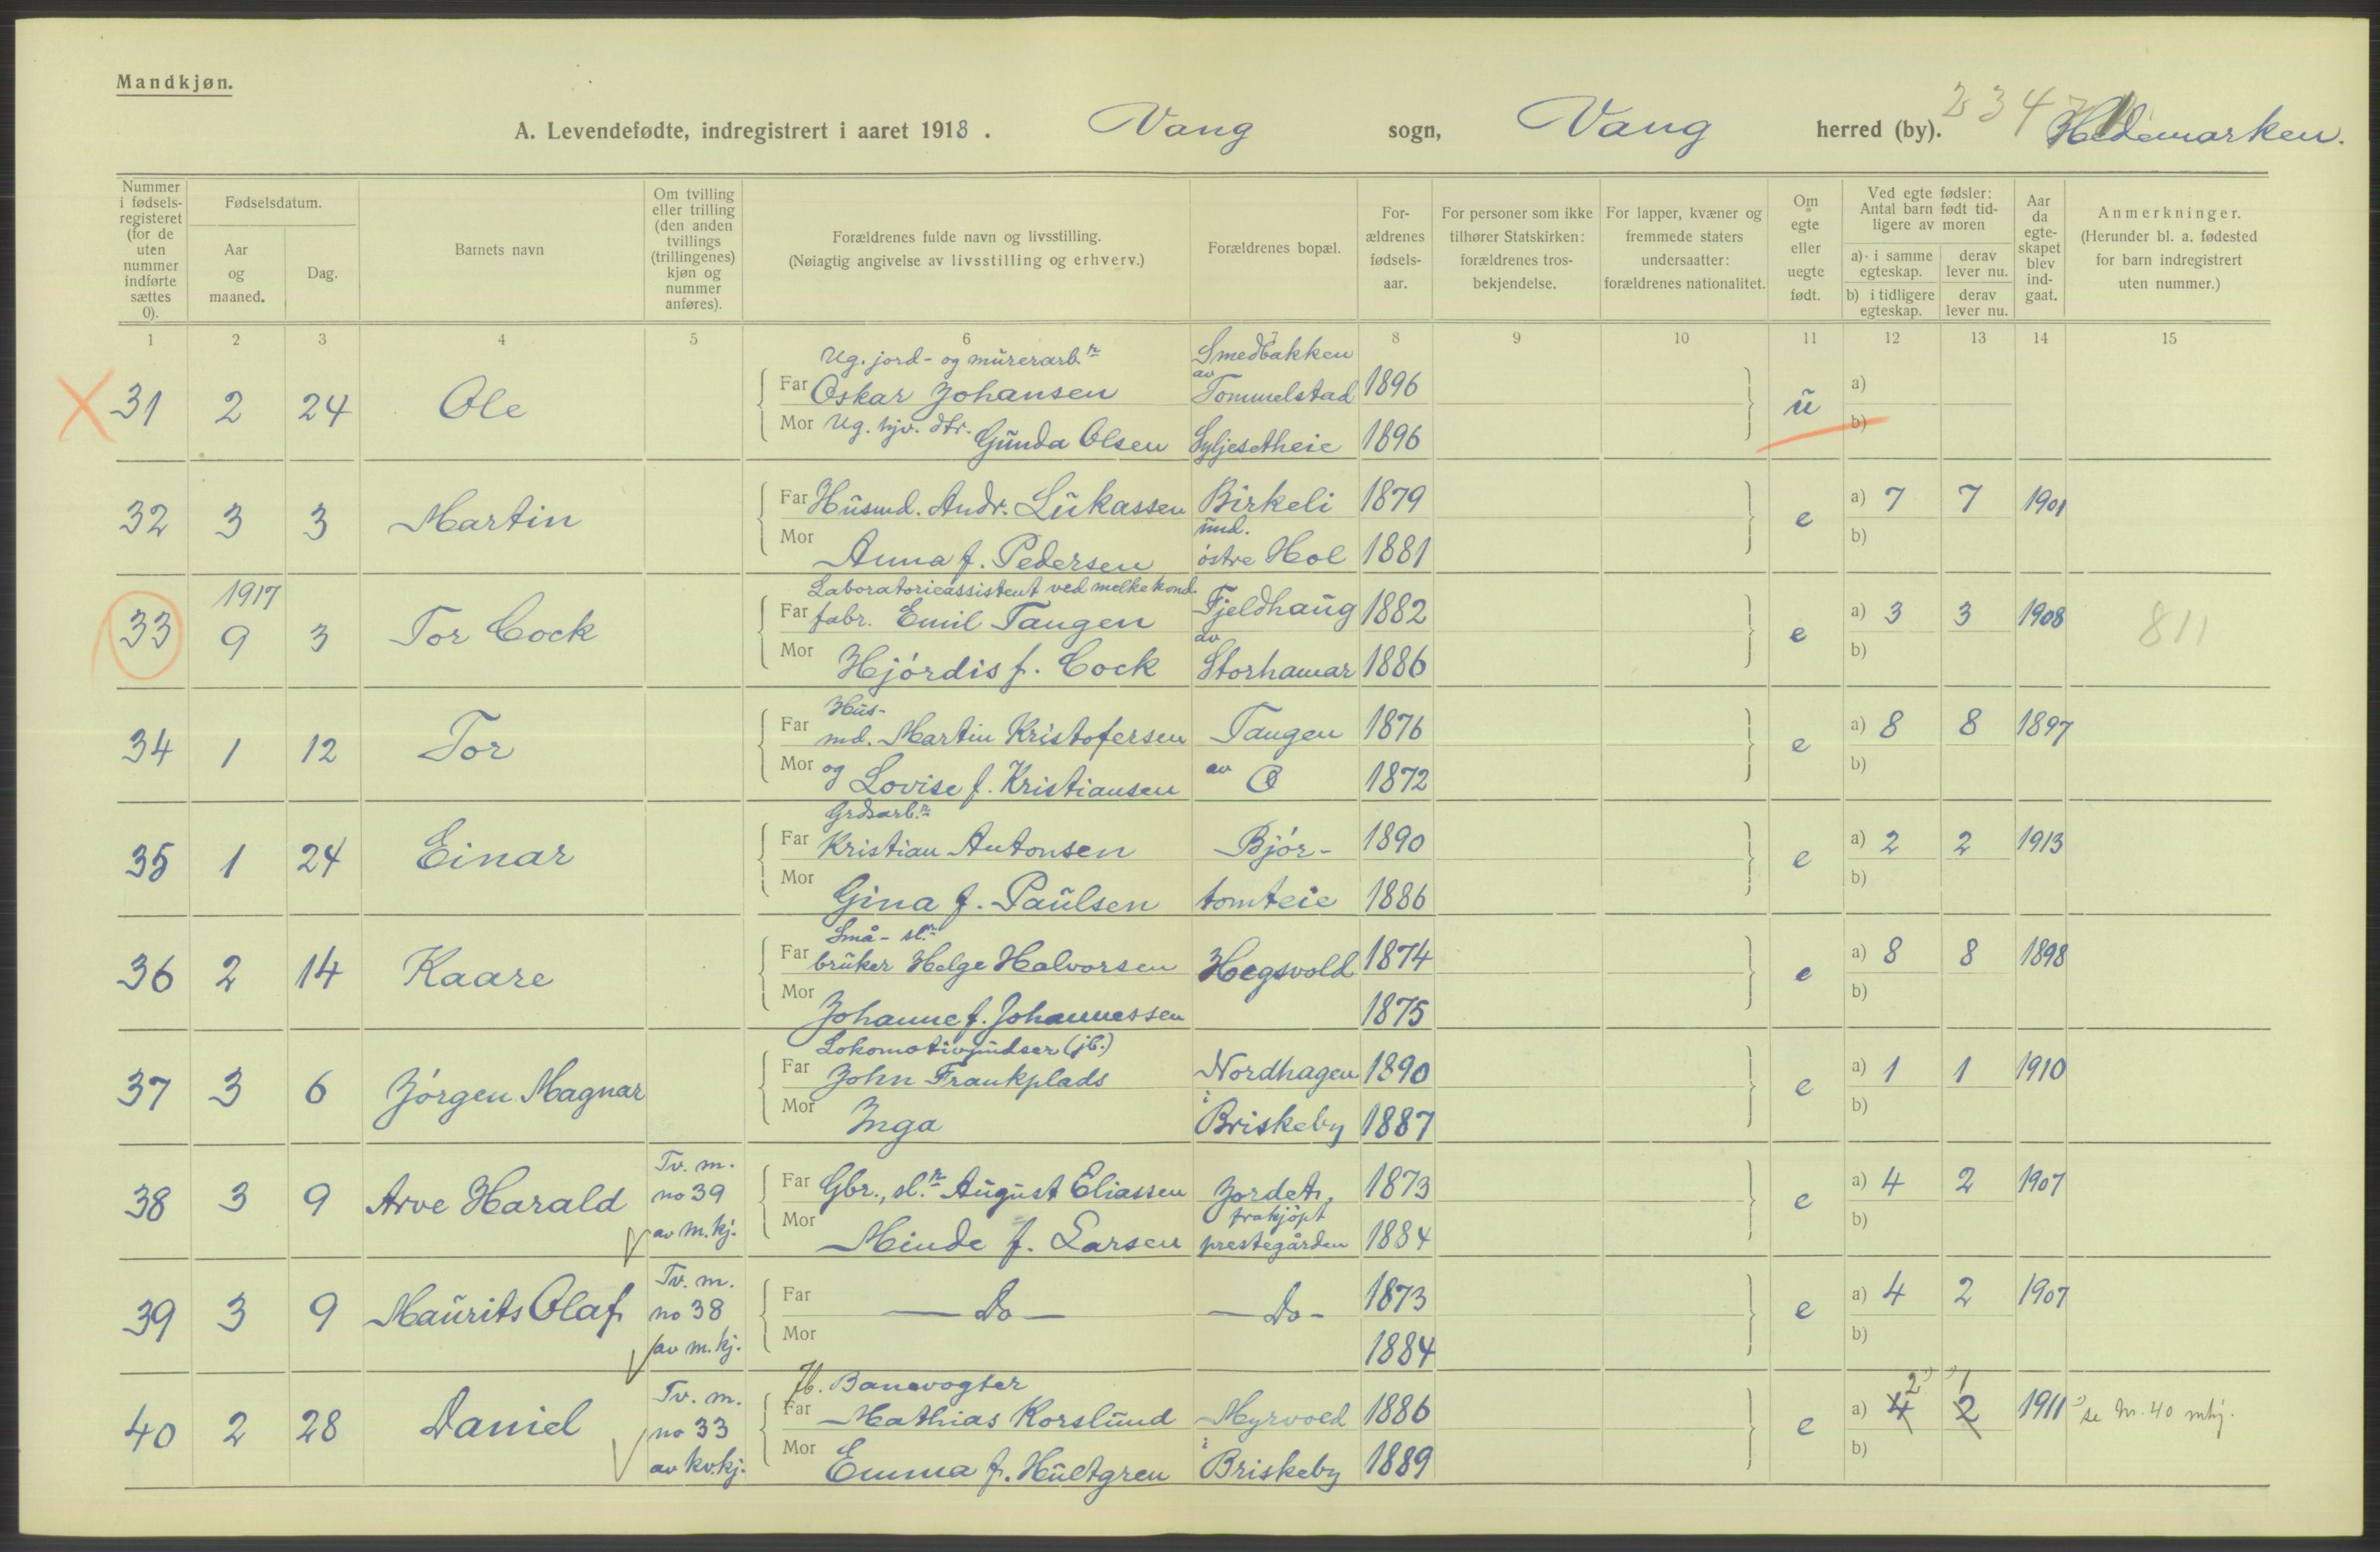 Mandkjøn.
A. Levendefødte, indregistrert i aaret 1918. Vang sogn, Vang herred (by). 234 Hedemarken.
Nummer i fødsels-registeret (for de uten nummer indførte sættes 0).
Fødselsdatum.
Aar og maaned.
Dag.
Barnets navn
Om tvilling eller trilling (den anden tvillings (trillingenes) kjøn og nummer anføres).
Forældrenes fulde navn og livsstilling.
(Nøiagtig angivelse av livsstilling og erhverv.)
Forældrenes bopæl.
For-ældrenes fødsels-aar.
For personer som ikke tilhører Statskirken: forældrenes tros-bekjendelse.
For lapper, kvæner og fremmede staters undersaatter: forældrenes nationalitet.
Om egte eller uegte født.
Ved egte fødsler: Antal barn født tid-ligere av moren
a) i samme egteskap. derav lever nu.
b) i tidligere egteskap. derav lever nu.
Aar da egte-skapet blev ind-gaat.
Anmerkninger.
(Herunder bl. a. fødested for barn indregistrert uten nummer.)
1 2 3 4 5 6 7 8 9 10 11 12 13 14 15
Ug. jord- og mürerarb.r Smedbakken
31 2 24 Ole Far Oskar Johansen av Tommelstad 1896 ü a)
Mor Ug. hjv. dtr. Günda Olsen Syljesetheie 1896 b)
32 3 3 Martin Far Hüsmd. Andr. Lükassen Birkeli 1879 e a) 7 7 1901
Mor Anna f. Pedersen ünd. østre Hol 1881 b)
1917 Laboratorieassistent ved melkekond.
33 9 3 Tor Cock Far fabr. Emil Tangen Fjeldhaüg 1882 e a) 3 3 1908 811
Mor Hjørdis f. Cock av Storhamar 1886 b)
Hüs-
34 1 12 Tor Far md. Martin Kristofersen Tangen 1876 e a) 8 8 1897
Mor og Lovise f. Kristiansen av O 1872 b)
Grdsarb.r
35 1 24 Einar Far Kristian Antonsen Bjør- 1890 e a) 2 2 1913
Mor Gina f. Paülsen tomteie 1886 b)
Små- sl.r
36 2 14 Kaare Far brüker Helge Halvorsen Hegsvold 1874 e a) 8 8 1898
Mor Johanne f. Johannessen 1875 b)
Lokomotivpüdser (jb.)
37 3 6 Jørgen Magnar Far John Frankplads Nordhagen 1890 e a) 1 1 1910
Mor Inga i Briskeby 1887 b)
38 3 9 Arve Harald Tv. m. no 39 av m.kj. Far Gbr., sl.r Aügüst Eliassen Jordet, 1873 e a) 4 2 1907
Mor Minde f. Larsen frakjøpt prestegården 1884 b)
39 3 9 Maürits Olaf Tv. m. no 38 av m.kj. Far — Do — — Do - 1873 e a) 4 2 1907
Mor 1884 b)
Jb. Banevogter
40 2 28 Daniel Tv. m. no 33 av kv.kj. Far Mathias Korslünd Myrvold 1886 e a) 4 2 2 1 1911 se nr. 40 mkj.
Mor Emma f. Hültgren i Briskeby 1889 b)